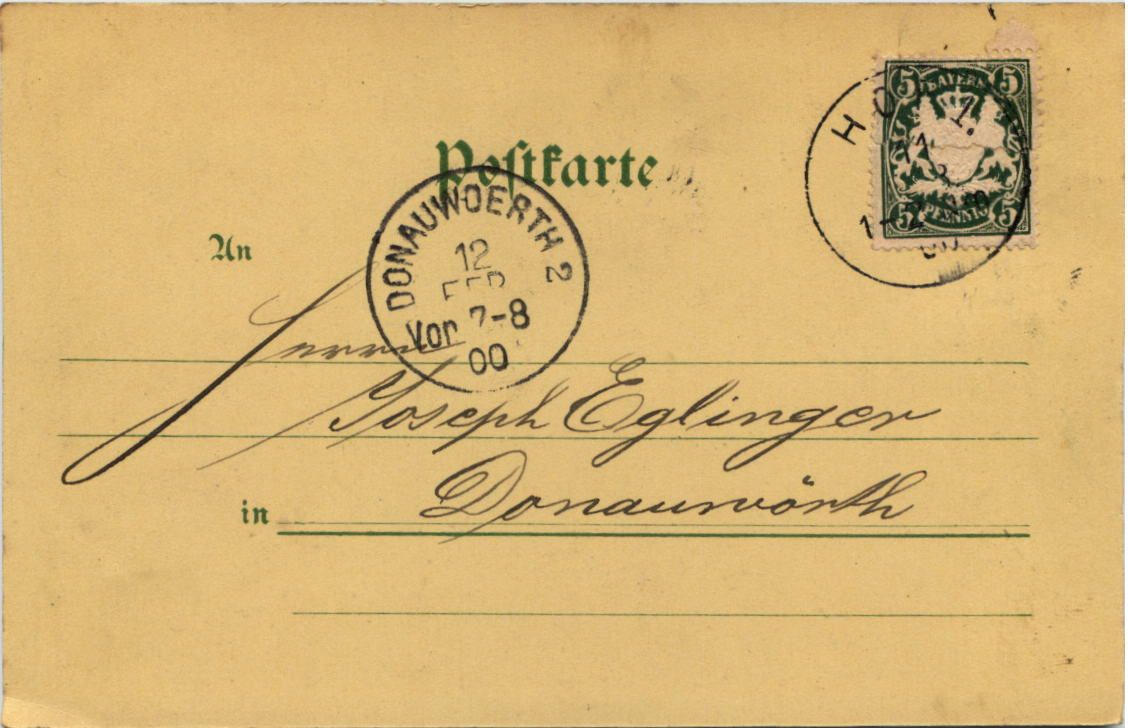 Postkarte
5 BAYERN 5
5 PFENNIG 5
1.
11
1-2
00
DONAUWOERTH 2
12
FEB
Vor 7-8
00
An
Herrn
Joseph Eglinger
in Donauwörth